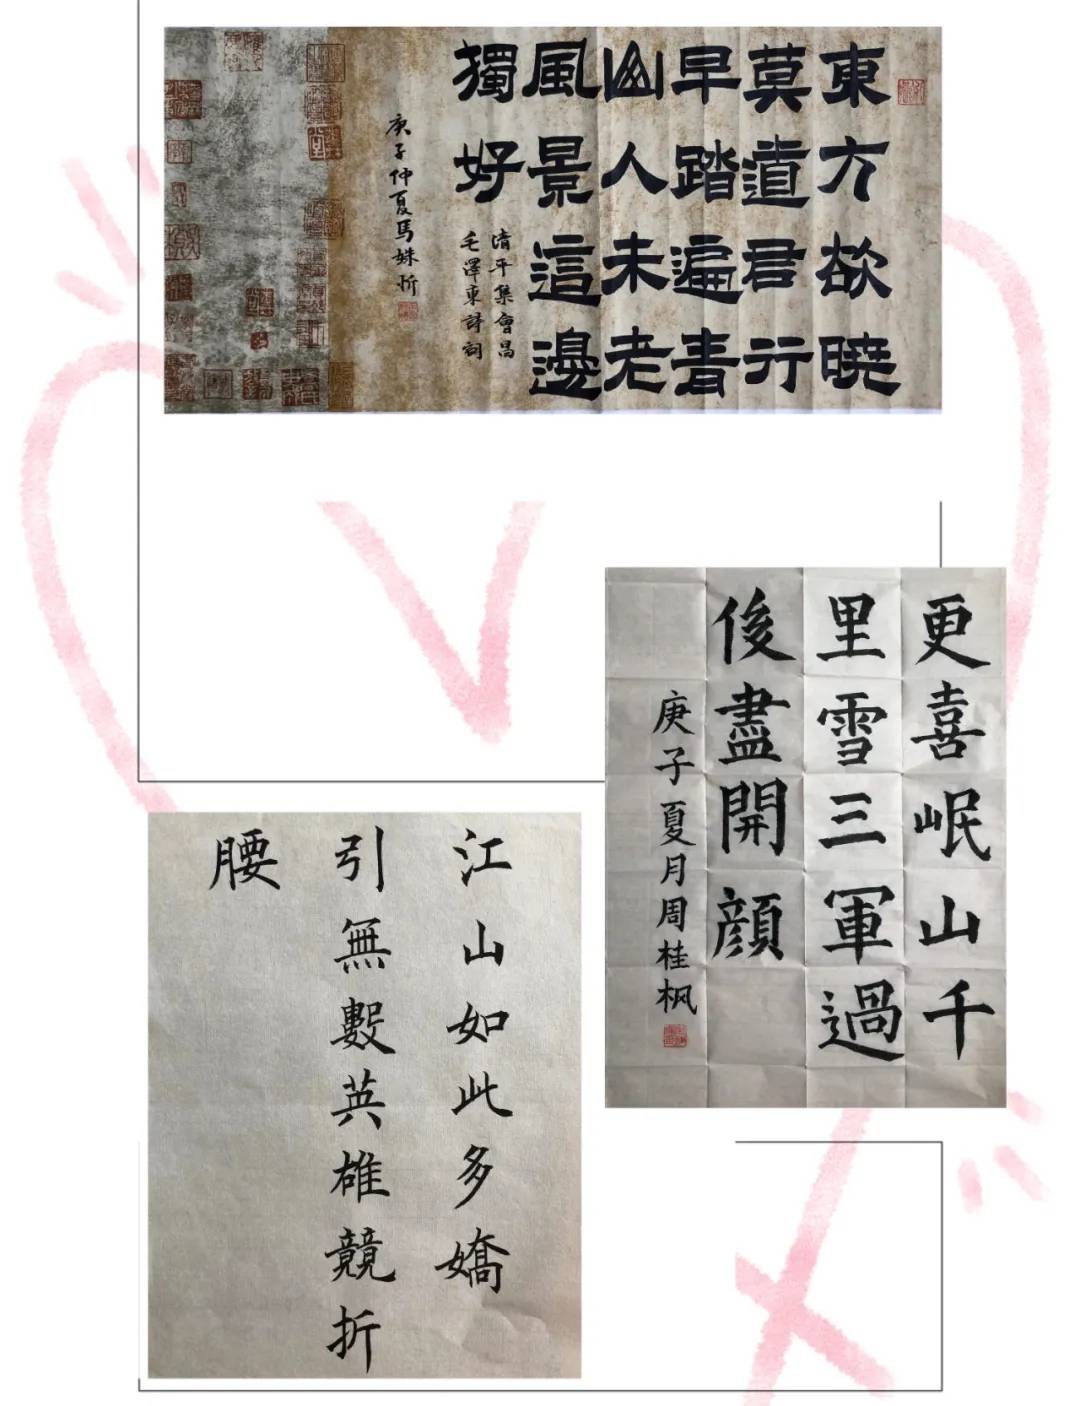 東方欲曉
莫道君行
早踏遍青
山人未老
風景這邊
獨好
清平集會昌
毛澤東詩詞
庚子仲夏馬姝忻
更喜岷山千
里雪三軍過
後盡開顔
庚子夏月周桂枫
江山如此多嬌
引無數英雄競折
腰